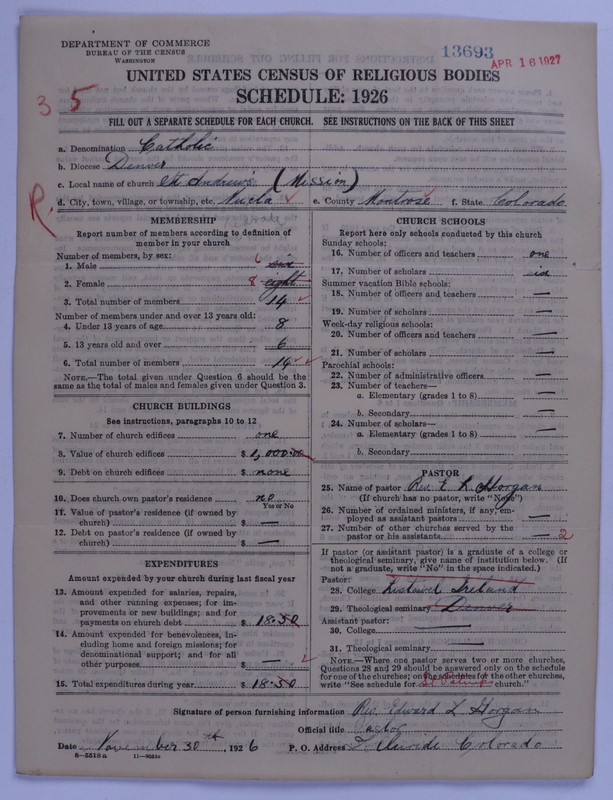 DEPARTMENT OF COMMERCE
BUREAU OF THE CENSUS
WASHINGTON
13693
APR 16 1927
UNITED STATES CENSUS OF RELIGIOUS BODIES
SCHEDULE: 1926
3 5
FILL OUT A SEPARATE SCHEDULE FOR EACH CHURCH. SEE INSTRUCTIONS ON THE BACK OF THIS SHEET
a. Denomination Catholic
b. Diocese Denver
c. Local name of church St Andrew's (Mission)
d. City, town, village, or township, etc. Nucla e. County Montrose f. State Colorado
R.
MEMBERSHIP
Report number of members according to definition of
member in your church
Number of members, by sex:
1. Male 6 six
2. Female 8 eight
3. Total number of members 14
Number of members under and over 13 years old:
4. Under 13 years of age 8
5. 13 years old and over 6
6. Total number of members 14
NOTE.—The total given under Question 6 should be the
same as the total of males and females given under Question 3.
CHURCH BUILDINGS
See instructions, paragraphs 10 to 12
7. Number of church edifices one
8. Value of church edifices $ 1,000.00
9. Debt on church edifices $ none
10. Does church own pastor's residence no
Yes or No
11. Value of pastor's residence (if owned by
church) $ —
12. Debt on pastor's residence (if owned by
church) $ —
EXPENDITURES
Amount expended by your church during last fiscal year
13. Amount expended for salaries, repairs,
and other running expenses; for im-
provements or new buildings; and for
payments on church debt $ 18.50
14. Amount expended for benevolences, in-
cluding home and foreign missions; for
denominational support; and for all
other purposes $ —
15. Total expenditures during year $ 18.50
CHURCH SCHOOLS
Report here only schools conducted by this church
Sunday schools:
16. Number of officers and teachers one
17. Number of scholars six
Summer vacation Bible schools:
18. Number of officers and teachers —
19. Number of scholars —
Week-day religious schools:
20. Number of officers and teachers —
21. Number of scholars —
Parochial schools:
22. Number of administrative officers —
23. Number of teachers—
a. Elementary (grades 1 to 8) —
b. Secondary —
24. Number of scholars—
a. Elementary (grades 1 to 8) —
b. Secondary —
PASTOR
25. Name of pastor Rev. E. L. Horgan
(If church has no pastor, write "None")
26. Number of ordained ministers, if any, em-
ployed as assistant pastors —
27. Number of other churches served by the
pastor or his assistants — 2
If pastor (or assistant pastor) is a graduate of a college or
theological seminary, give name of institution below. (If
not a graduate, write "No" in the space indicated.)
Pastor:
28. College Listowel Ireland
29. Theological seminary Denver
Assistant pastor:
30. College —
31. Theological seminary —
NOTE.—Where one pastor serves two or more churches,
Questions 28 and 29 should be answered only on the schedule
for one of the churches; on the schedules for the other churches,
write "See schedule for St Patrick church."
Signature of person furnishing information Rev. Edward L Horgan
Official title Pastor
Date November 30th, 1926 P. O. Address Telluride Colorado
8-5518a